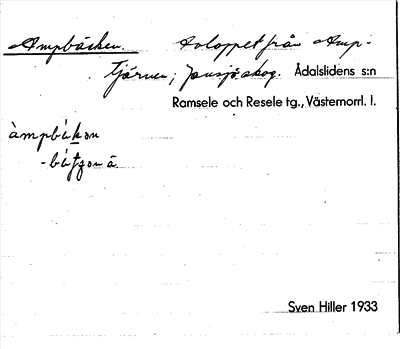 Ampbäcken. Avloppet från Amp-
tjärnen; Jansjöskog. Ådalslidens s:n
Ramsele och Resele tg., Västernorrl. l.
àmpbä́kon
Sven Hiller 1933